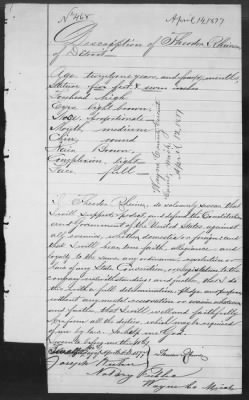 No 468 April 14, 1877
Description of Theodor Rheime
of Detroit
Age twenty one years and months
Stature five feet & seven inches
Forehead high
Eyes light brown
Nose proportional
Mouth medium
Chin round
Hair Brown
Complexion light
Face full
April 12, 1877
I Theodor Rheime, do solemnly swear that
I will support, protect, and defend the Constitution
and Government of the United States, against
all enemies, whether domestic or foreign; and
that I will bear true faith, allegiance, and
loyalty to the same, any ordinance, resolution or
law of any State Convention, or Legislature to the
contrary notwithstanding; and further, that I do
this with a full determination, pledge, and purpose,
without any mental reservation or evasion whatsoever
and further, that I will well and faithfully
perform all the duties, which may be required
of me by law. So help me God
Sworn to before me this 10th
day of April A.D. 1877
Notary Public
Wayne Co Mich